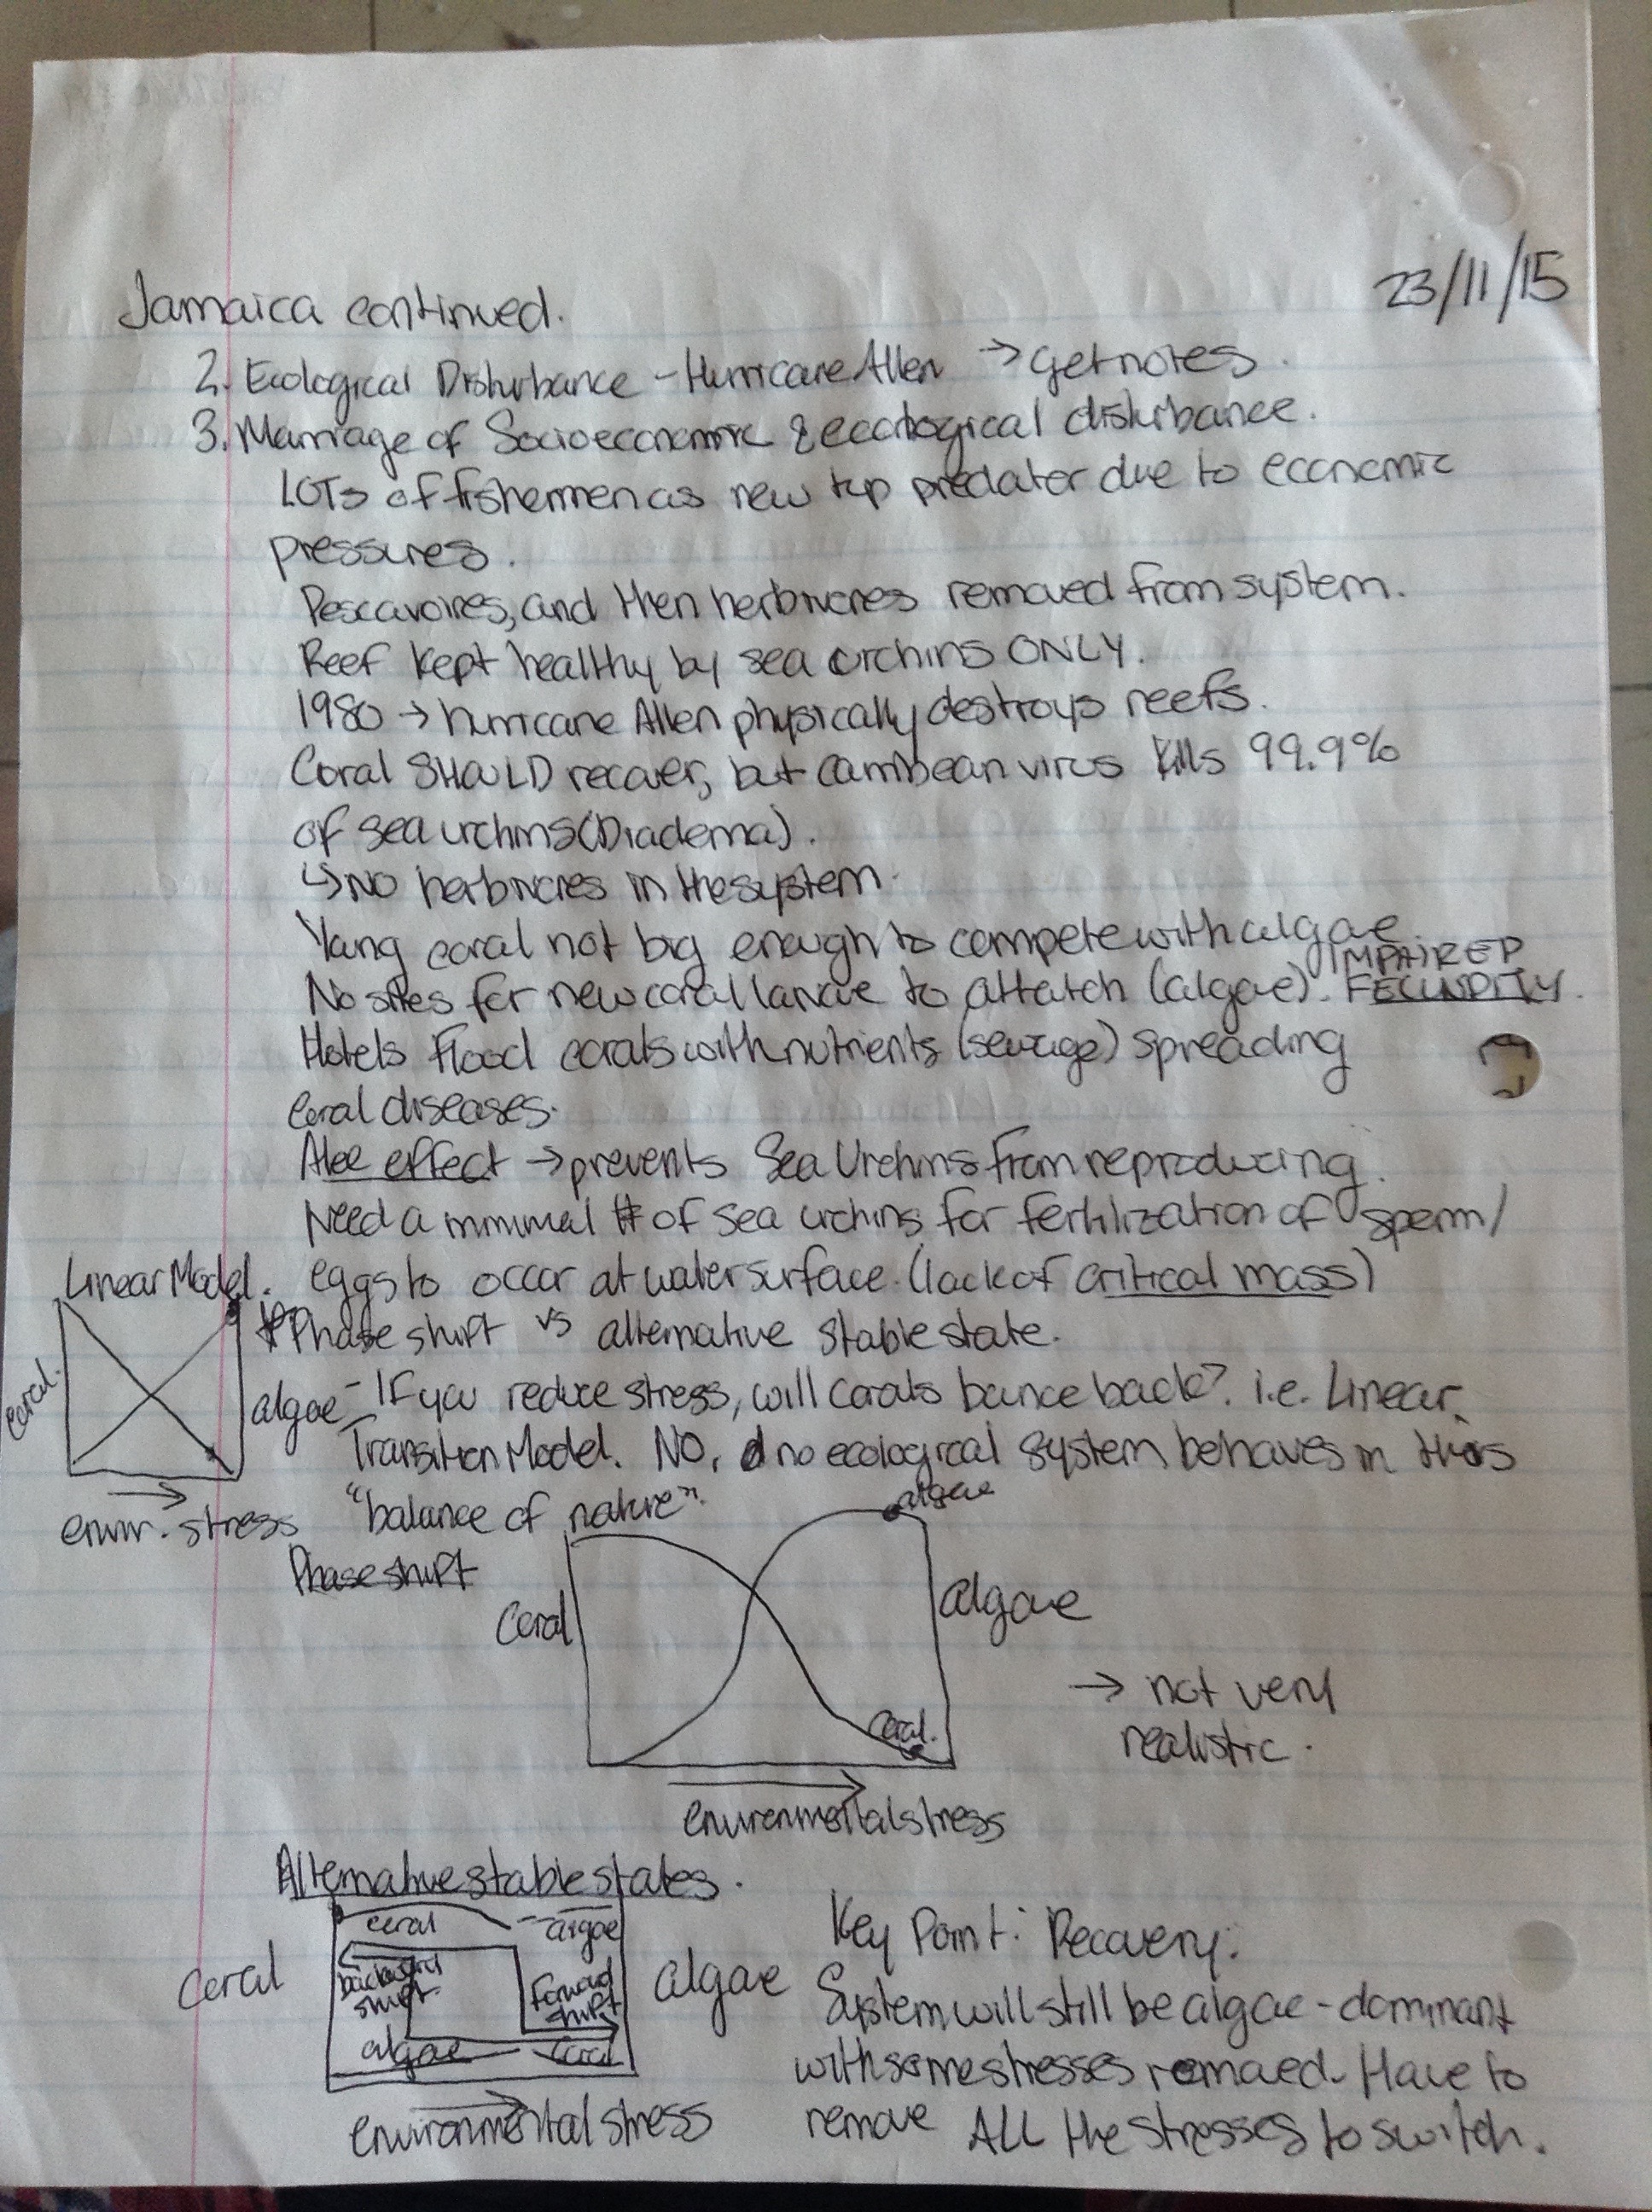 23/11/15
Jamaica continued.
2. Ecological Disturbance - Hurricane Allen → get notes.
3. Marriage of Socioeconomic & ecological disturbance.
LOTs of fishermen as new top predater due to economic
pressures.
Pescavoires, and then herbivores removed from system.
Reef kept healthy by sea urchins ONLY.
1980 → hurricane Allen physically destroys reefs.
Coral SHOULD recover, but carribean virus kills 99.9%
of sea urchins (Diadema).
↳ NO herbivores in the system.
Young coral not big enough to compete with algae.
No sites for new coral larvae to attatch (algae). IMPAIRED FECUNDITY.
Hotels flood corals with nutrients (sewage) spreading
coral diseases.
Alee effect → prevents Sea Urchins from reproducing.
Need a minimal # of sea urchins for fertilization of sperm/
eggs to occur at water surface. (lack of critical mass)
Linear Model.
coral.
algae
envir. stress
* Phase shift vs alternative stable state.
- If you reduce stress, will corals bounce back? i.e. Linear
Transition Model. NO, no ecological system behaves in this
"balance of nature".
Phase shift
Coral
algae
coral.
algae
environmental stress
→ not very
realistic.
Alternative stable states.
coral
algae
backward
shift
forward
shift
algae
coral
Coral
algae
environmental stress
Key Point: Recovery:
System will still be algae-dominant
with some stresses removed. Have to
remove ALL the stresses to switch.